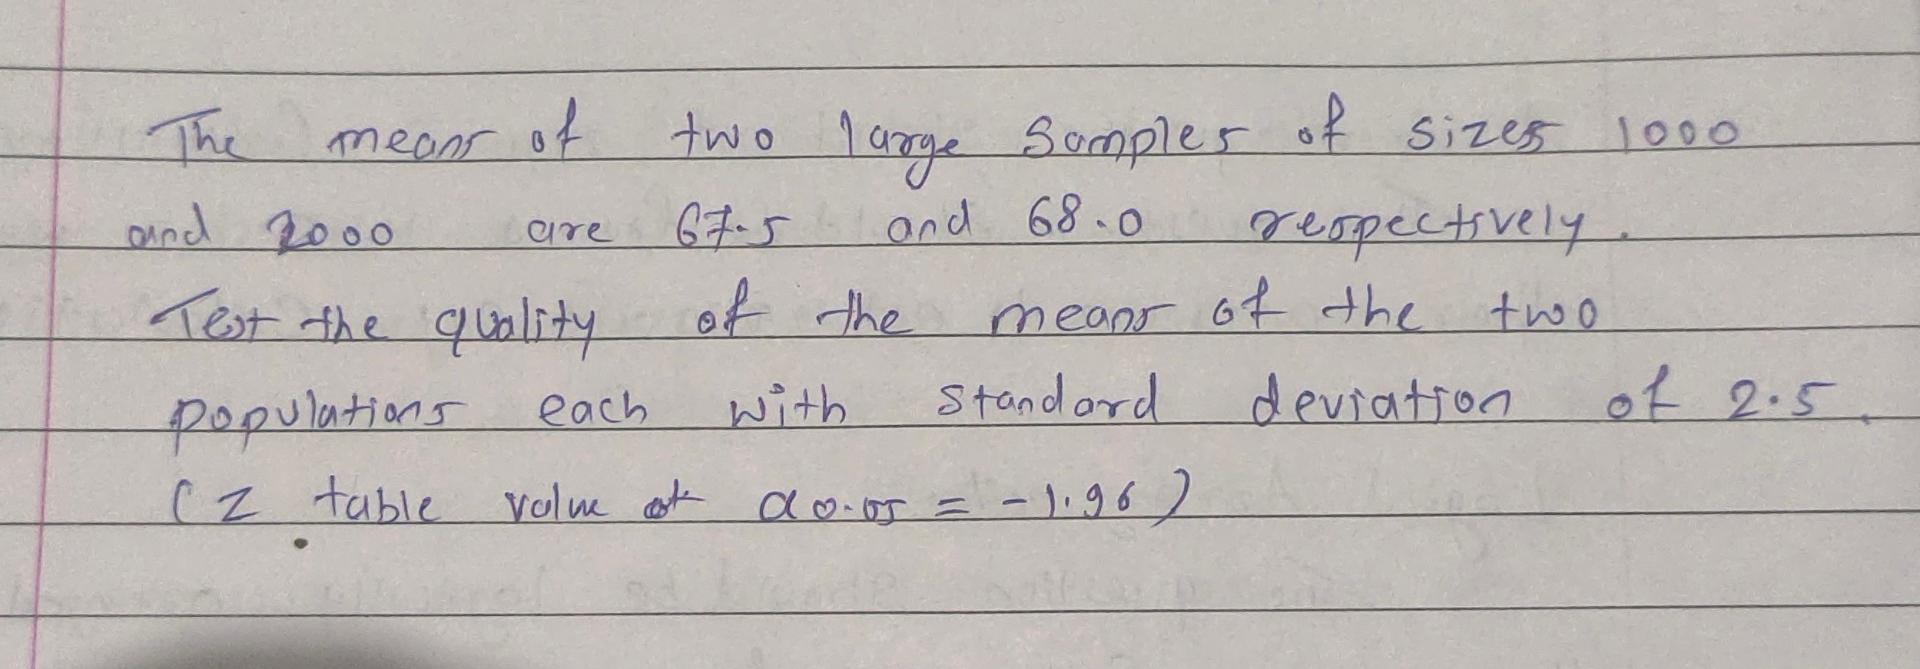 The means of two large samples of sizes 1000
and 2000 are 67.5 and 68.0 respectively.
Test the quality of the means of the two
populations each with standard deviation of 2.5.
(Z table value at α0.05 = -1.96)